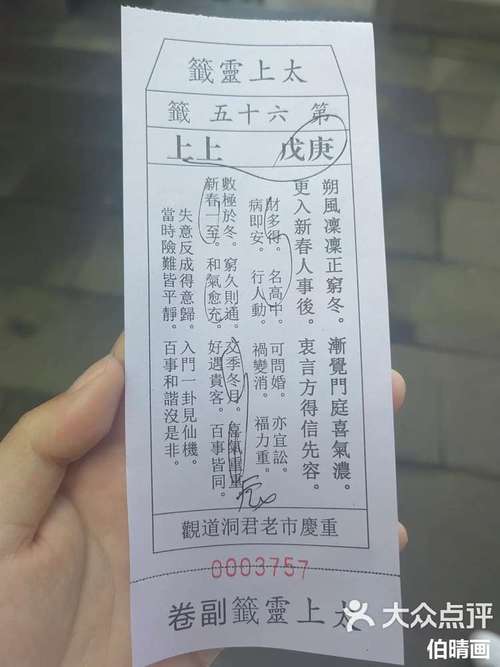 太上靈籤
第六十五籤
庚戊 上上
朔風凜凜正窮冬。漸覺門庭喜氣濃。
更入新春人事後。衷言方得信先容。
財多得。名高中。可問婚。亦宜訟。
病即安。行人動。禍變消。福力重。
數極於冬。窮久則通。季冬月。喜氣重重。
新春一至。和氣愈充。好遇貴客。百事皆同。
失意反成得意歸。入門一卦見仙機。
當時險難皆平靜。百事和諧沒是非。
重慶市老君洞道觀
0003757
太上靈籤副卷
大众点评
伯晴画